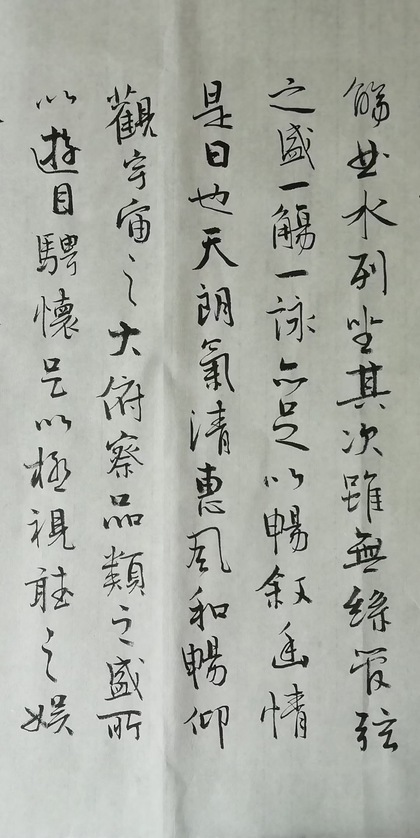 觴曲水列坐其次雖無絲管弦
之盛一觴一詠亦足以暢敘幽情
是日也天朗氣清惠風和暢仰
觀宇宙之大俯察品類之盛所
以遊目騁懷足以極視聽之娛